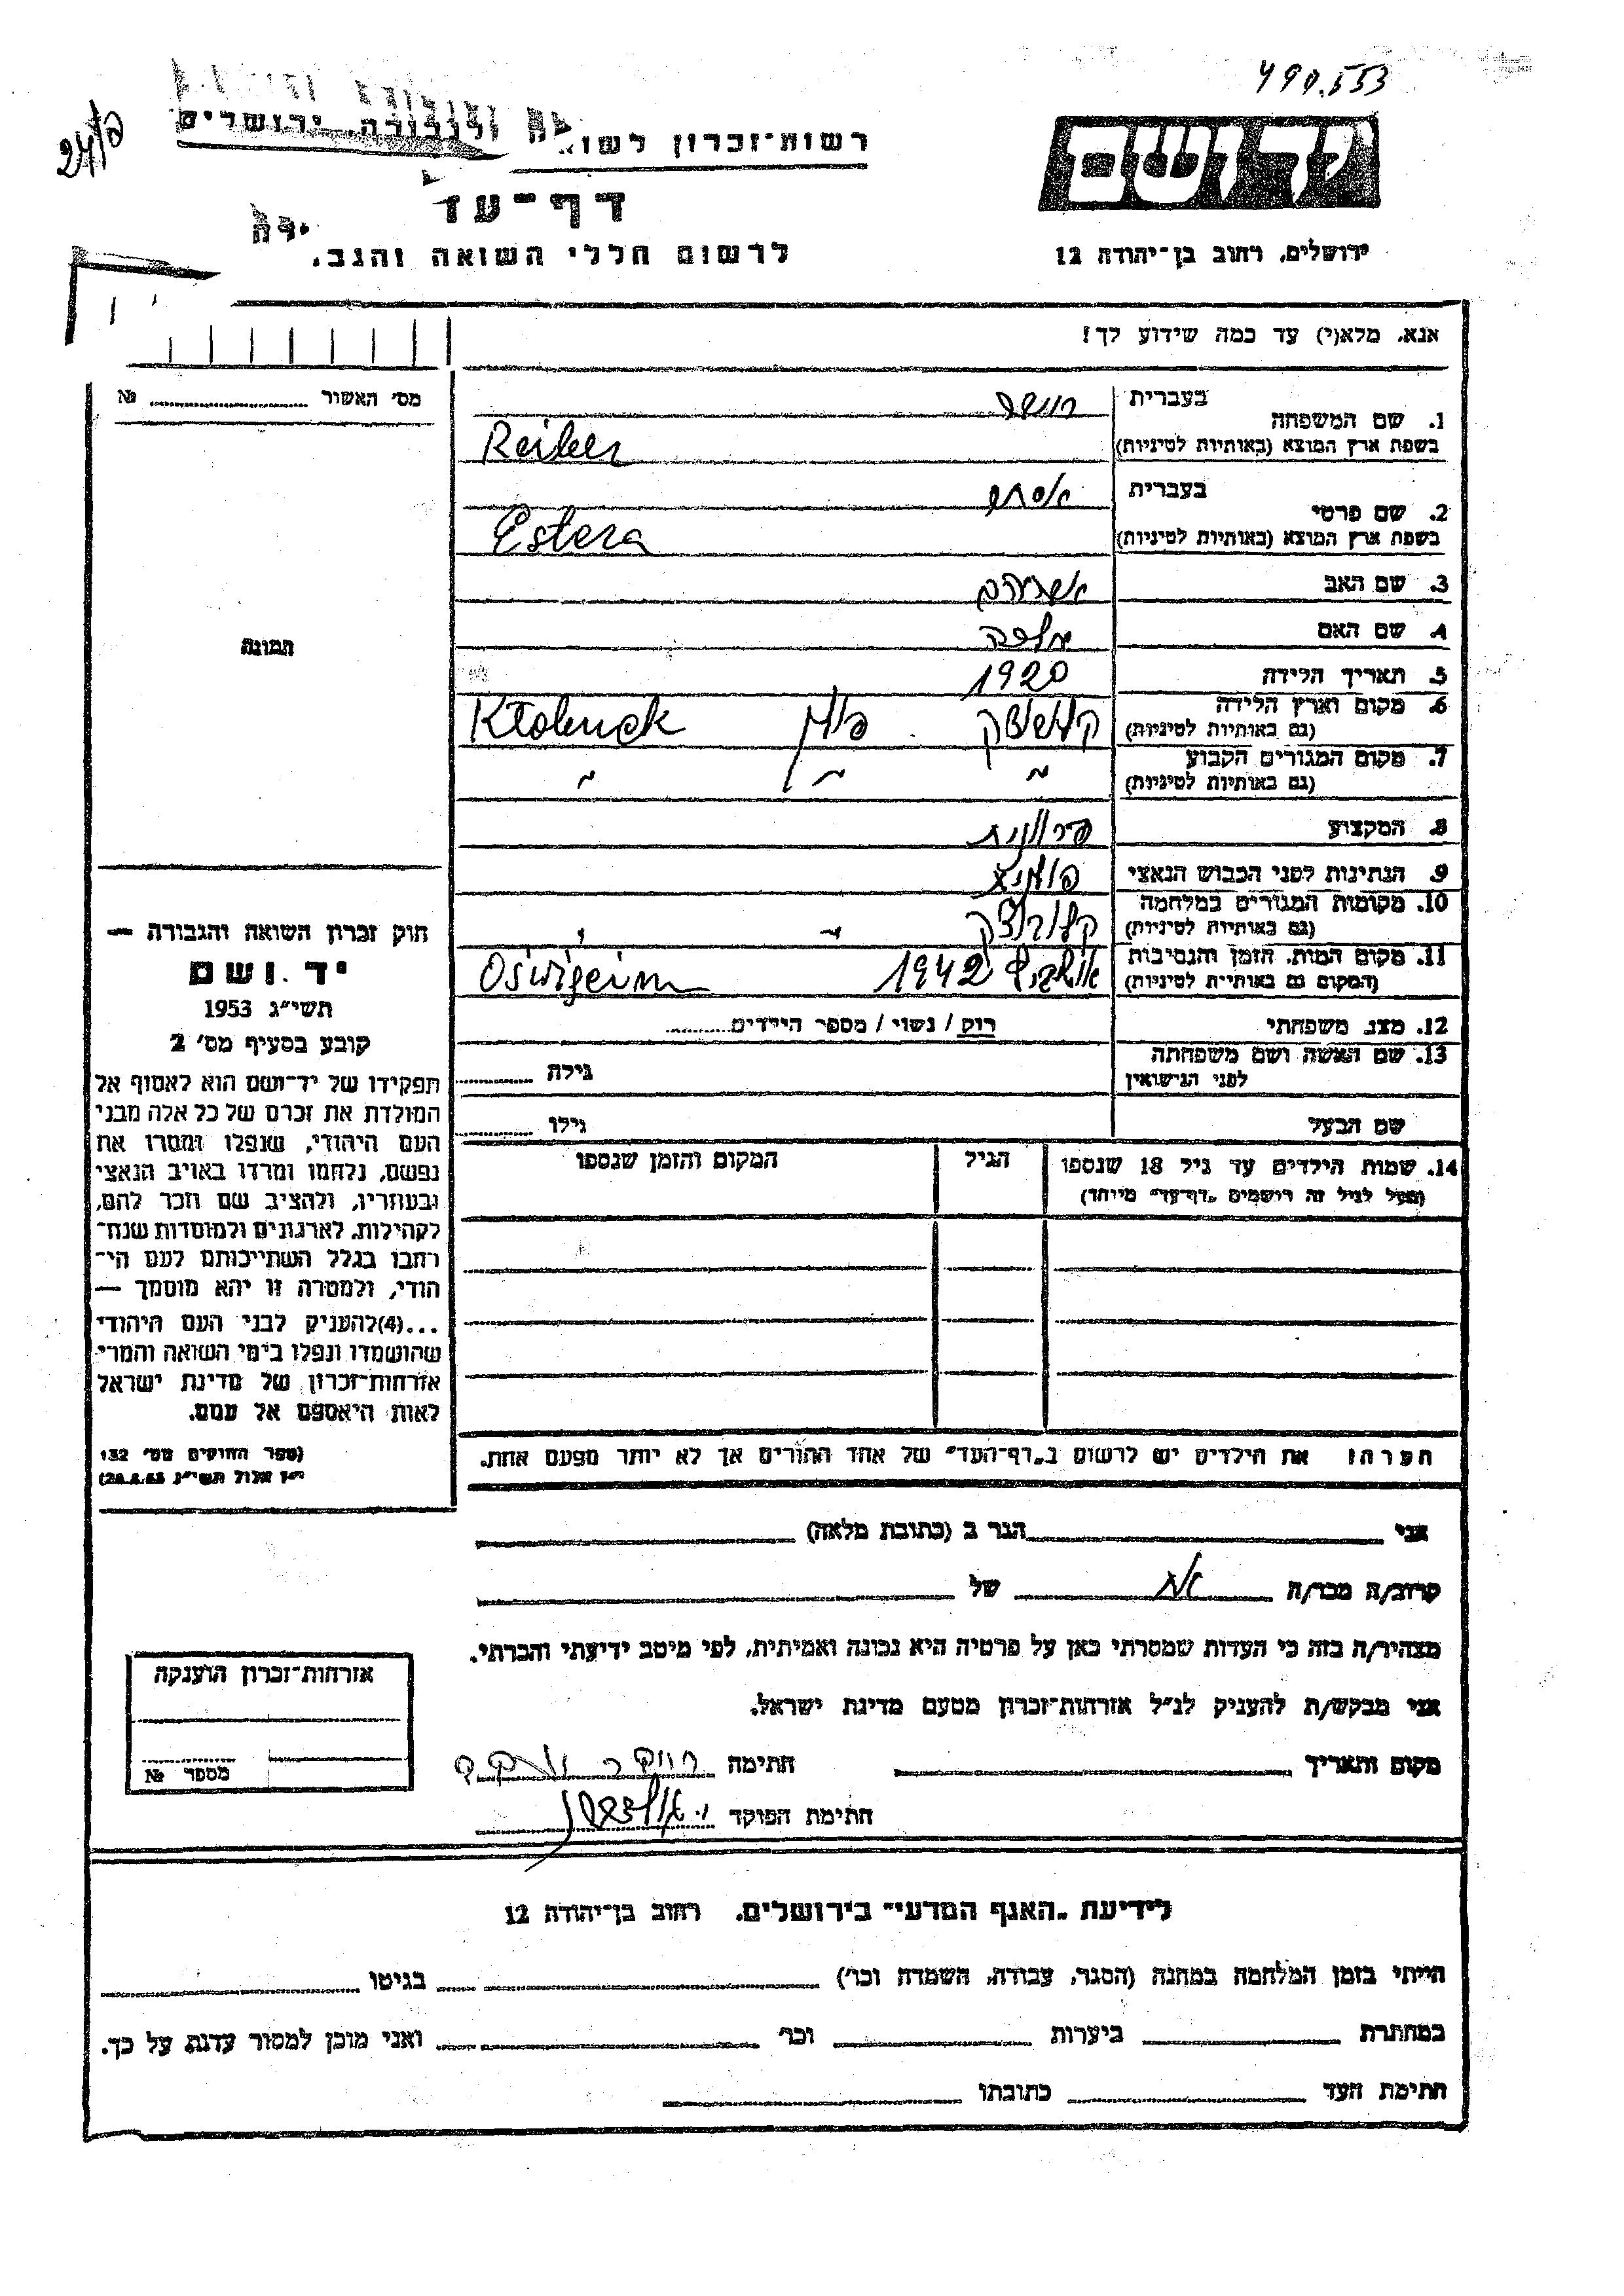 490.553
24/פ
רשות־זכרון לשואה ולגבורה, ירושלים
יד ושם
דף־עד
ירושלים, רחוב בן־יהודה 12
לרשום חללי השואה והגב.
אנא, מלא(י) עד כמה שידוע לך!
מס׳ האשור ............ №
1. שם המשפחה
בעברית
בשפת ארץ המוצא (באותיות לטיניות)
Reiber
2. שם פרטי
בעברית אסתר
בשפת ארץ המוצא (באותיות לטיניות)
Estera
3. שם האב
4. שם האם
5. תאריך הלידה 1920
6. מקום וארץ הלידה
(גם באותיות לטיניות)
פולין Kłobuck
7. מקום המגורים הקבוע
(גם באותיות לטיניות) ~ ~ ~
8. המקצוע
9. הנתינות לפני הכבוש הנאצי
10. מקומות המגורים במלחמה
(גם באותיות לטיניות)
11. מקום המות, הזמן והנסיבות
(המקום גם באותיות לטיניות)
1942 Oświęcim
12. מצב משפחתי רוק / נשוי / מספר הילדים
13. שם האשה ושם משפחתה
לפני הנישואין
גילה
שם הבעל גילו
14. שמות הילדים עד גיל 18 שנספו הגיל המקום והזמן שנספו
(מעל לגיל זה רושמים „דף־עד״ מיוחד)
הערה: את הילדים יש לרשום ב„דף־העד״ של אחד ההורים אך לא יותר מפעם אחת.
תמונה
חוק זכרון השואה והגבורה —
יד ושם
תשי״ג 1953
קובע בסעיף מס׳ 2
תפקידו של יד־ושם הוא לאסוף אל
המולדת את זכרם של כל אלה מבני
העם היהודי, שנפלו ומסרו את
נפשם, נלחמו ומרדו באויב הנאצי
ובעוזריו, ולהציב שם וזכר להם,
לקהילות, לארגונים ולמוסדות שנח־
רבו בגלל השתייכותם לעם הי־
הודי, ולמטרה זו יהא מוסמך —
...(4)להעניק לבני העם היהודי
שהושמדו ונפלו בימי השואה והמרי
אזרחות־זכרון של מדינת ישראל
לאות היאספם אל עמם.
(ספר החוקים מס׳ 132
י״ז אלול תשי״ג 28.8.53)
אני הגר ב (כתובת מלאה)
קרוב/ה מכר/ה אח של
מצהיר/ה בזה כי העדות שמסרתי כאן על פרטיה היא נכונה ואמיתית, לפי מיטב ידיעתי והכרתי.
אני מבקש/ת להעניק לנ״ל אזרחות־זכרון מטעם מדינת ישראל.
מקום ותאריך חתימה
חתימת הפוקד
אזרחות־זכרון הוענקה
מספר №
לידיעת „האגף המדעי״ בירושלים, רחוב בן־יהודה 12
הייתי בזמן המלחמה במחנה (הסגר, עבודה, השמדה וכו׳) בגיטו
במחתרת ביערות וכו׳ ואני מוכן למסור עדות על כך.
חתימת העד כתובתו